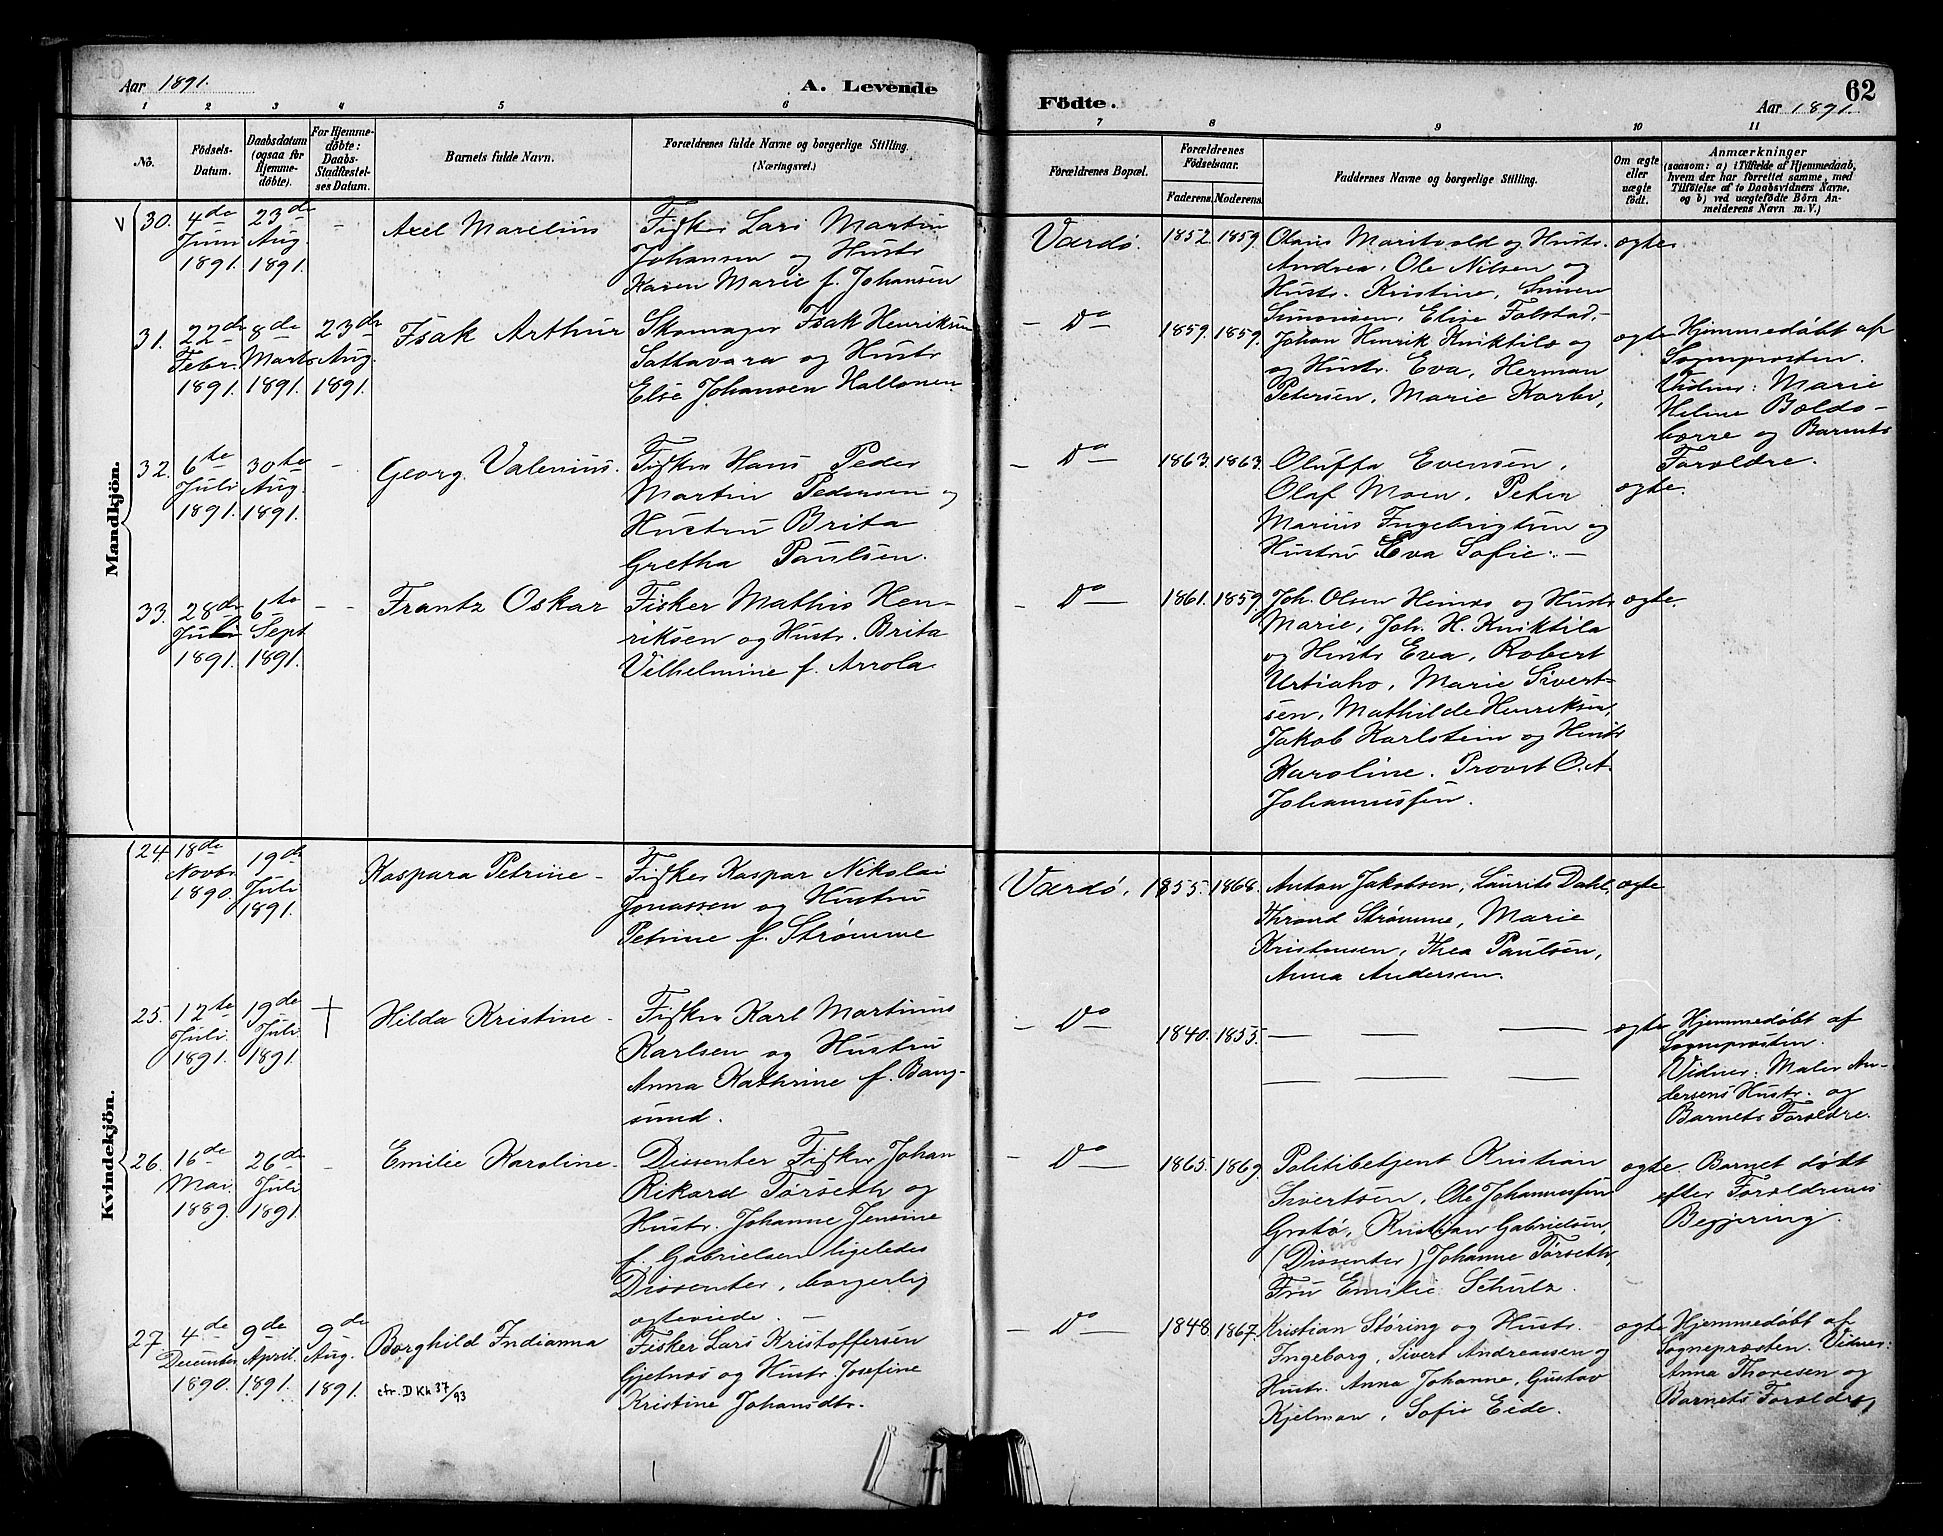 Aar 1891.
A. Levende
Födte.
Aar 1891.
62
1 2 3 4 5 6 7 8 9 10 11
No.
Födsels-
Datum.
Daabsdatum
(ogsaa for
Hjemme-
døbte).
For Hjemme-
døbte:
Daabs-
Stadfæstel-
ses Datum.
Barnets fulde Navn.
Forældrenes fulde Navne og borgerlige Stilling.
(Næringsvei.)
Forældrenes Bopæl.
Forældrenes
Födselsaar.
Faderens.
Moderens.
Faddernes Navne og borgerlige Stilling.
Om ægte
eller
uægte
født.
Anmærkninger
(saasom: a) i Tilfælde af Hjemmedaab,
hvem der har forrettet samme, med
Tilföielse af to Daabsvidners Navne,
og b) ved uægtefødte Börn An-
melderens Navn m. V.)
Mandkjön.
30.
4de
Juni
1891.
23de
Aug.
1891.
-
Axel Marelius
Fisker Lars Martin
Johansen og Hustr
Karen Marie f. Johansen
Vardø.
1852. 1859.
Olaus Maritvold og Hustr.
Andrea, Ole Nilsen og
Hustr. Kristine, Simen
Simonsen, Elise Folstad.
ægte.
31.
22de
Febr.
1891.
8de
Marts
1891.
23de
Aug.
1891.
Isak Arthur
Skomager Isak Henriksen
Sattavara og Hustr
Else Johansen Hallonen
- Do -
1859. 1859.
Johan Henrik Kniktila og
og Hustr. Eva, Herman
Petersen, Marie Korbi,
ægte
Hjemmedøbt af
Sogneprosten.
Vidner: Marie
Helene Boldo-
borre og Barnets
Forældre.
32.
6te
Juli
1891.
30te
Aug.
1891.
-
Georg Valenius.
Fisker Hans Peder
Martin Pedersen og
Hustru Brita
Gretha Paulsen.
- Do -
1863. 1863.
Oluffa Evensen,
Olaf Moen, Peter
Marius Ingebrigtsen og
Hustru Eva Sofie. -
ægte.
33.
28de
Juli
1891.
6te
Sept
1891.
- -
Frantz Oskar
Fisker Mathis Hen-
riksen og Hustr. Brita
Vilhelmine f. Arrola
- Do -
1861. 1859.
Joh. Olsen Heinæs og Hustr
Marie, Joh. H. Kniktila
og Hustr Eva, Robert
Urtiaho, Marie Sivert-
sen, Mathilde Henriksen,
Jakob Karlstein og Hustr
Karoline. Provst O. A.
Johannessen.
ægte.
Kvindekjön.
24
18de
Novbr
1890.
19de
Juli
1891.
-
Kaspara Petrine -
Fisker Kaspar Nikolai
Jonassen og Hustru
Petrine f. Strømme
Vardø.
1855. 1868.
Anton Jakobsen, Laurits Dahl,
Thrond Strømme, Marie
Kristensen, Thea Paulsen,
Anna Andersen.
ægte
25.
12te
Juli
1891.
19de
Juli
1891.
†
Hilda Kristine -
Fisker Karl Martinus
Karlsen og Hustru
Anna Kathrine f. Bang-
sund.
- Do -
1840. 1855.
— — —
— — —
ægte
Hjemmedøbt af
Sogneprosten.
Vidner: Maler An-
dersens Hustr. og
Barnets Forældre.
26.
16de
Mai
1889.
26de
Juli
1891.
-
Emilie Karoline -
Dissenter Fisker Johan
Rikard Tørseth og
Hustr. Johanne Jensine
f. Gabrielsen ligeledes
Dissenter, borgerlig
ægteviede. -
- Do -
1865. 1869.
Politibetjent Kristian
Sivertsen, Ole Johannessen
Grotø, Kristian Gabrielsen,
(Dissenter) Johanne Tørseth,
Fru Emilie Schulz.
ægte.
Barnet døbt
efter Forældrenes
Begjering.
27.
4de
December
1890.
9de
April.
1891.
9de
Aug.
1891.
Borghild Indianna
cfr. D Kh 37/93
Fisker Lars Kristoffersen
Gjetnæs og Hustr. Josefine
Kristine Johansdtr.
- Do -
1848. 1867.
Kristian Støring og Hustr.
Ingeborg, Sivert Andreassen og
Hustr. Anna Johanne, Gustav
Kjelman, Sofie Eide.
ægte
Hjemmedøbt af
Sogneprosten. Vidner:
Anna Thoresen og
Barnets Forældre